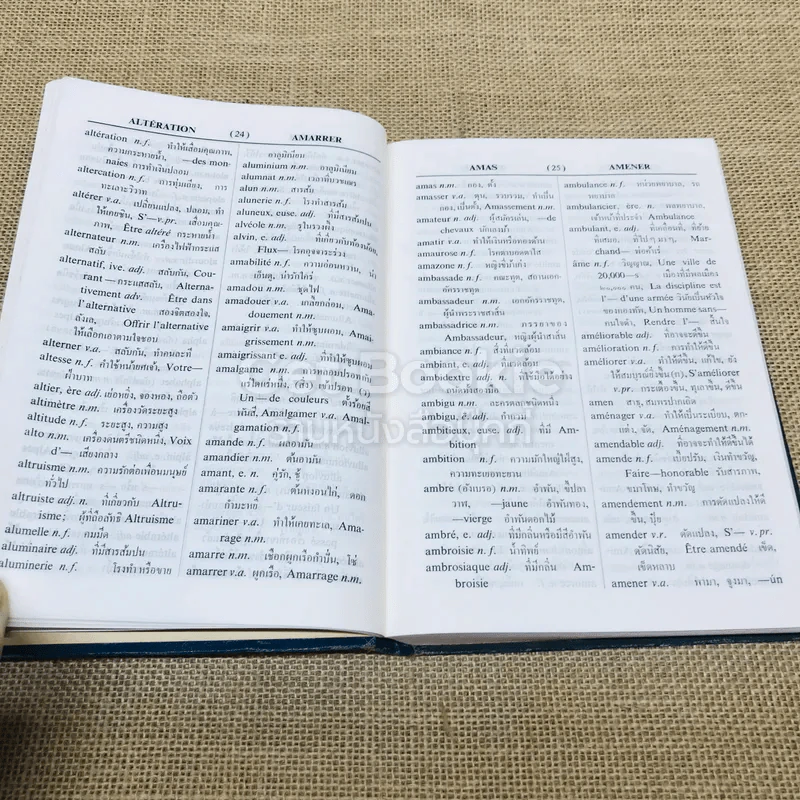 ALTÉRATION (24) AMARRER
altération n.f. ทำให้เสื่อมคุณภาพ,
ความกระหายน้ำ, —des mon-
naies การทำเงินปลอม
altercation n.f. การทุ่มเถียง, การ
ทะเลาะวิวาท
altérer v.a. เปลี่ยนแปลง, ปลอม, ทำ
ให้เคยชิน, S'—v.pr. เสื่อมคุณ-
ภาพ, Être altéré กระหายน้ำ
alternateur n.m. เครื่องไฟฟ้ากระแส
สลับ
alternatif, ive. adj. สลับกัน, Cou-
rant—กระแสสลับ, Alterna-
tivement adv. Être dans
l'alternative สองจิตสองใจ,
ลังเล, Offrir l'alternative
ให้เลือกเอาตามใจชอบ
alterner v.a. สลับกัน, ทำคนละที
altesse n.f. คำใช้หน้ายศเจ้า, Votre—
ฝ่าบาท
altier, ère adj. เย่อหยิ่ง, จองหอง, ถือตัว
altimètre n.m. เครื่องวัดระยะสูง
altitude n.f. ระยะสูง, ความสูง
alto n.m. เครื่องดนตรีชนิดหนึ่ง, Voix
d'— เสียงกลาง
altruisme n.m. ความรักต่อเพื่อนมนุษย์
ทั่วไป
altruiste adj. n. ที่เกี่ยวกับ Altru-
isme; ผู้ที่ถือลัทธิ Altruisme
alumelle n.f. คมมีด
aluminaire adj. ที่มีสารส้มปน
aluminerie n.f. โรงทำหรือขาย
อาลูมิเนียม
aluminium n.m. อาลูมิเนียม
alumnat n.m. เวลาที่บวชเณร
alun n.m. สารส้ม
alunerie n.f. โรงทำสารส้ม
aluneux, euse. adj. ที่มีสารส้มปน
alvéole n.m. รูในรวงผึ้ง
alvin, e. adj. ที่เกี่ยวกับท้องน้อย,
Flux—โรคอุจจาระร่วง
amabilité n.f. ความอ่อนหวาน, น่า
เอ็นดู, น่ารักใคร่
amadou n.m. ชุดไฟ
amadouer v.a. เกลี้ยกล่อม, Ama-
douement n.m.
amaigrir v.a. ทำให้ซูบผอม, Amai-
grissement n.m.
amaigrissant e. adj. ที่ทำให้ซูบผอม
amalgame n.m. การหลอมปรอทกับ
แร่ใดแร่หนึ่ง, (สำ) แร่ปรอท
Un—de couleurs ตั้งร้อยสี
พันสี, Amalgamer v.a. Amal-
gamation n.f.
amande n.f. ผลอามัน
amandier n.m. ต้นอามัน
amant, e. n. คู่รัก, ชู้
amarante n.f. ต้นหงอนไก่, ดอก
กำมะหยี่
amariner v.a. ทำให้เคยทะเล, Ama-
rinage n.m.
amarre n.m. เชือกผูกเรือกำปั่น, โซ่
amarrer v.a. ผูกเรือ, Amarrage n.m.
AMAS (25) AMENER
amas n.m. กอง, ตั้ง
amasser v.a. ตุน, รวบรวม, ทำเป็น
กอง, เป็นตั้ง, Amassement n.m.
amateur n.m. ผู้สมัครเล่น, —de
chevaux นักเลงม้า
amatir v.a. ทำให้เงินหรือทองด้าน
amaurose n.f. โรคตาบอดตาใส
amazone n.f. หญิงขี่ม้าเก่ง
ambassade n.f. คณะทูต, สถานเอก-
อัครราชทูต
ambassadeur n.m. เอกอัครราชทูต,
ผู้นำพระราชสาส์น
ambassadrice n.m. ภรรยาของ
Ambassadeur, หญิงผู้นำสาส์น
ambiance n.f. สิ่งที่แวดล้อม
ambiant, e. adj. ที่แวดล้อม
ambidextre adj. n. ที่ใช้มือได้อย่าง
ถนัดทั้งสองมือ
ambigu n.m. ละครตลกชนิดหนึ่ง
ambigu, ë adj. กำกวม
ambitieux, euse. adj. ที่มี Am-
bition
ambition n.f. ความมักใหญ่ใฝ่สูง,
ความทะเยอทะยาน
ambre (อังเบรอ) n.m. อำพัน, ขี้ปลา
วาฬ, —jaune อำพัน
—vierge อำพันดอกไม้
ambré, e. adj. ที่มีกลิ่นหรือมีสีอำพัน
ambroisie n.f. น้ำทิพย์
ambrosiaque adj. ที่มีกลิ่น Am-
broisie
ambulance n.f. หน่วยพยาบาล, รถ
พยาบาล
ambulancier, ère. n. พลพยาบาล,
เจ้าหน้าที่ประจำ Ambulance
ambulant, e adj. ที่เคลื่อนที่, ที่ย้าย
ที่เสมอ, ที่ไป ๆ มา ๆ, Mar-
chand— พ่อค้าเร่
âme n.f. วิญญาณ, Une ville de
20,000—s เมืองที่มีพลเมือง
คน, La discipline est
l'—d'une armée วินัยเป็นหัวใจ
ของกองทัพ, Un homme sans—
คนใจดำ, Rendre l'— สิ้นใจ
améliorable adj. ที่อาจจะดีขึ้น
amélioration n.f. การทำให้ดีขึ้น
améliorer v.a. ทำให้ดีขึ้น, แก้ไข, ยัง
ให้สมบูรณ์ยิ่งขึ้น, S'améliorer
v.pr. กระเตื้องขึ้น, ทุเลาขึ้น, ดีขึ้น
amen สาธุ, สมหรปกเกล็ด
aménager v.a. ทำให้เป็นระเบียบ, ตก-
แต่ง, จัด, Aménagement n.m.
amendable adj. ที่อาจจะทำให้ดีขึ้นได้
amende n.f. เบี้ยปรับ, เงินทำขวัญ,
Faire—honorable รับสารภาพ,
ขมาโทษ, ทำขวัญ
amendement n.m. การดัดแปลงให้ดี
ขึ้น, ปุ๋ย
amender v.r. ดัดแปลง, S'— v.pr.
ดัดนิสัย, Être amendé เข็ด,
เข็ดหลาบ
amener v.a. พามา, จูงมา, —un
Bookie
ร้านหนังสือบุ๊คกี้